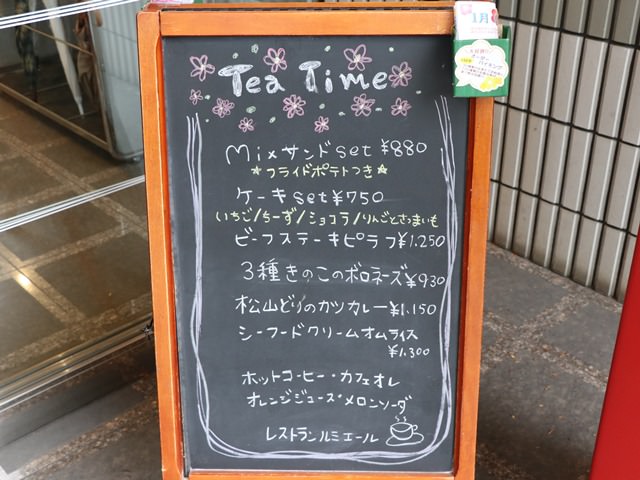 Tea Time
Mixサンドset ¥880
★フライドポテトつき★
ケーキset¥750
いちご/ちーず/ショコラ/りんごとさつまいも
ビーフステーキピラフ¥1.250
3種きのこのボロネーズ¥930
松山どりのカツカレー¥1.150
シーフードクリームオムライス
¥1.300
ホットコーヒー・カフェオレ
オレンジジュース・メロンソーダ
レストランルミエール
1月